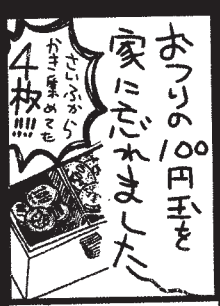 おつりの100円玉を
家に忘れました
さいふから
かき集めてた
4枚!!!!